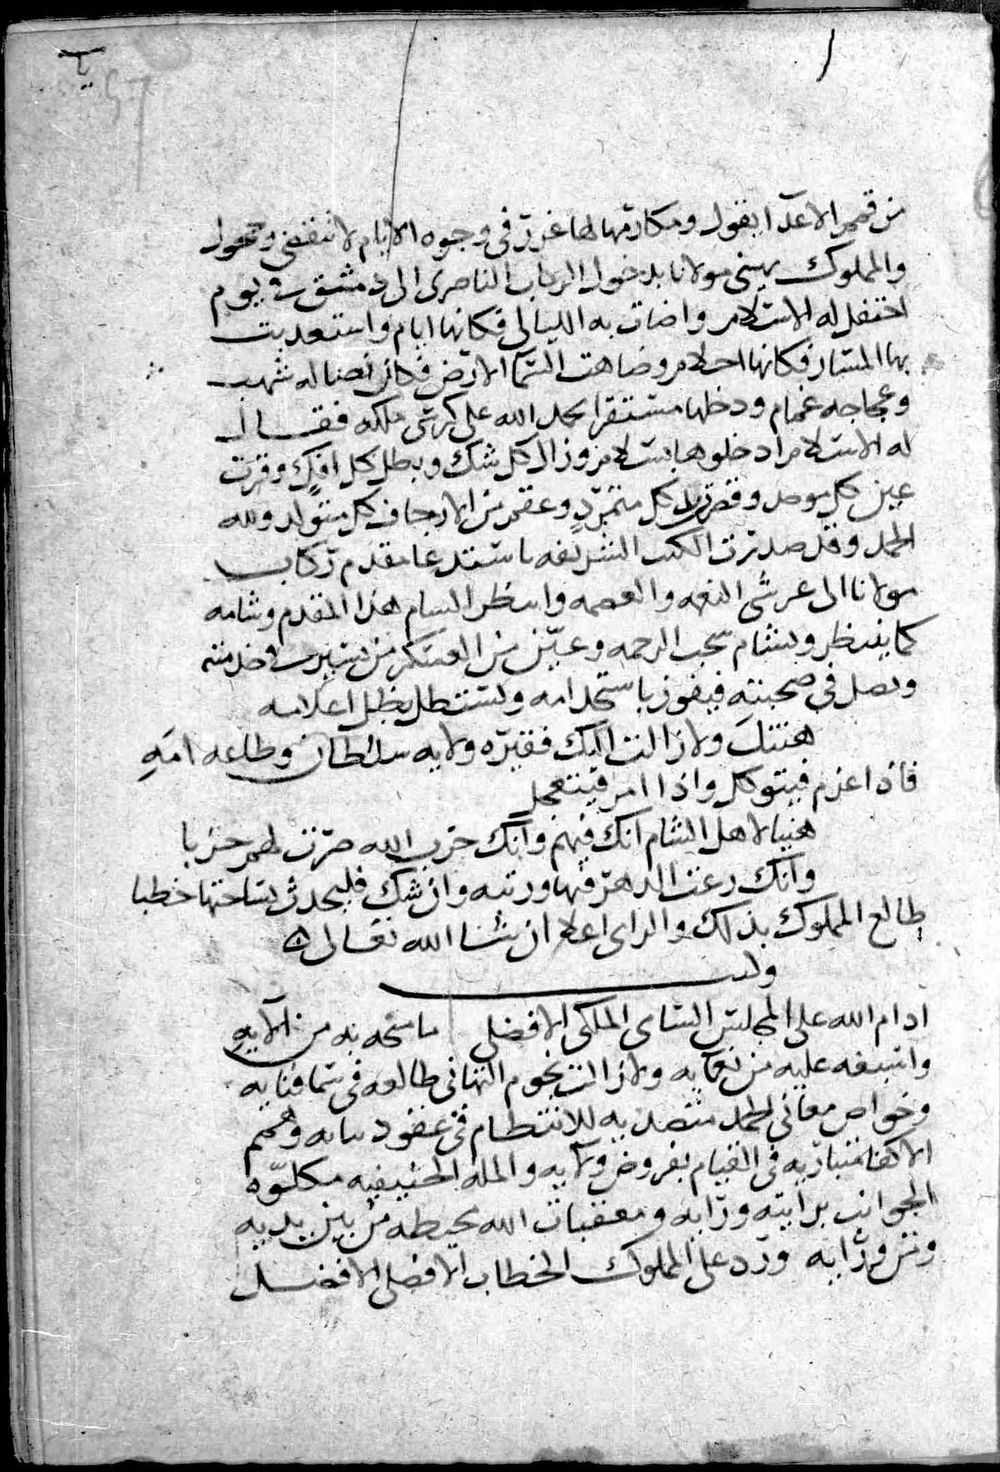 من قمم الاعدا بقول ومكارمها لها غرر فى وجوه الايام لا تنقضى وتحول
والمملوك يهنى مولانا بدخول الركاب الناصرى الى دمشق فى يوم
احتفل له الاسلام واضات به الليالى فكانها ايام واستعدبت
بها المسار فكانها احلام وضاهت السما الارض فكان نصاله شهب
وعجاجه غمام ودخلها مستقرا بحمد الله على كرسى ملكه فقال
له الاسلام ادخلوها بسلام وزال كل شك وبطل كل افك وقرت
عين كل موحد وقصرت يد كل متمرد وعقم من الارجاف كل متولد ولله
الحمد وقد صدرت الكتب الشريفه باستدعا مقدم ركاب
مولانا الى عرشى النعمه والعصمه وانتظر الشام هذا المقدم وشامه
كما ينتظر ويشام سحب الرحمه وعين من العسكر من يسير فى خدمته
ويصل فى صحبته فيفوز باستخدامه ويستظل بظل اعلامه
هنئتك ولا زالت اليك فقيره ولايه سلطان وطاعه امه
فاذا عزم فيتوكل واذا امر فيتعجل
هنيا لاهل الشام انك فيهم وانك حزب الله صرت لهم حزبا
وانك رعت الدهر فيها وريبه وان شك فليحدث بساحتها خطبا
طالع المملوك بذلك والراى اعلا ان شا الله تعالى ه
وله
ادام الله على المجلس السامى الملكى الافضلى ما منحه به من الايه
واسبغه عليه من نعمايه ولا زالت نجوم التهانى طالعه فى سما فنايه
وخواص معانى الحمد متصديه للانتظام فى عقود ثنايه وهمم
الاكفا متباريه فى القيام بفروض ولايه والمله الحنيفيه مكلوه
الجوانب برايته ورايه ومعقبات الله تحيطه من بين يديه
ومن ورايه ورد على المملوك الخطاب الافضلى الافضل